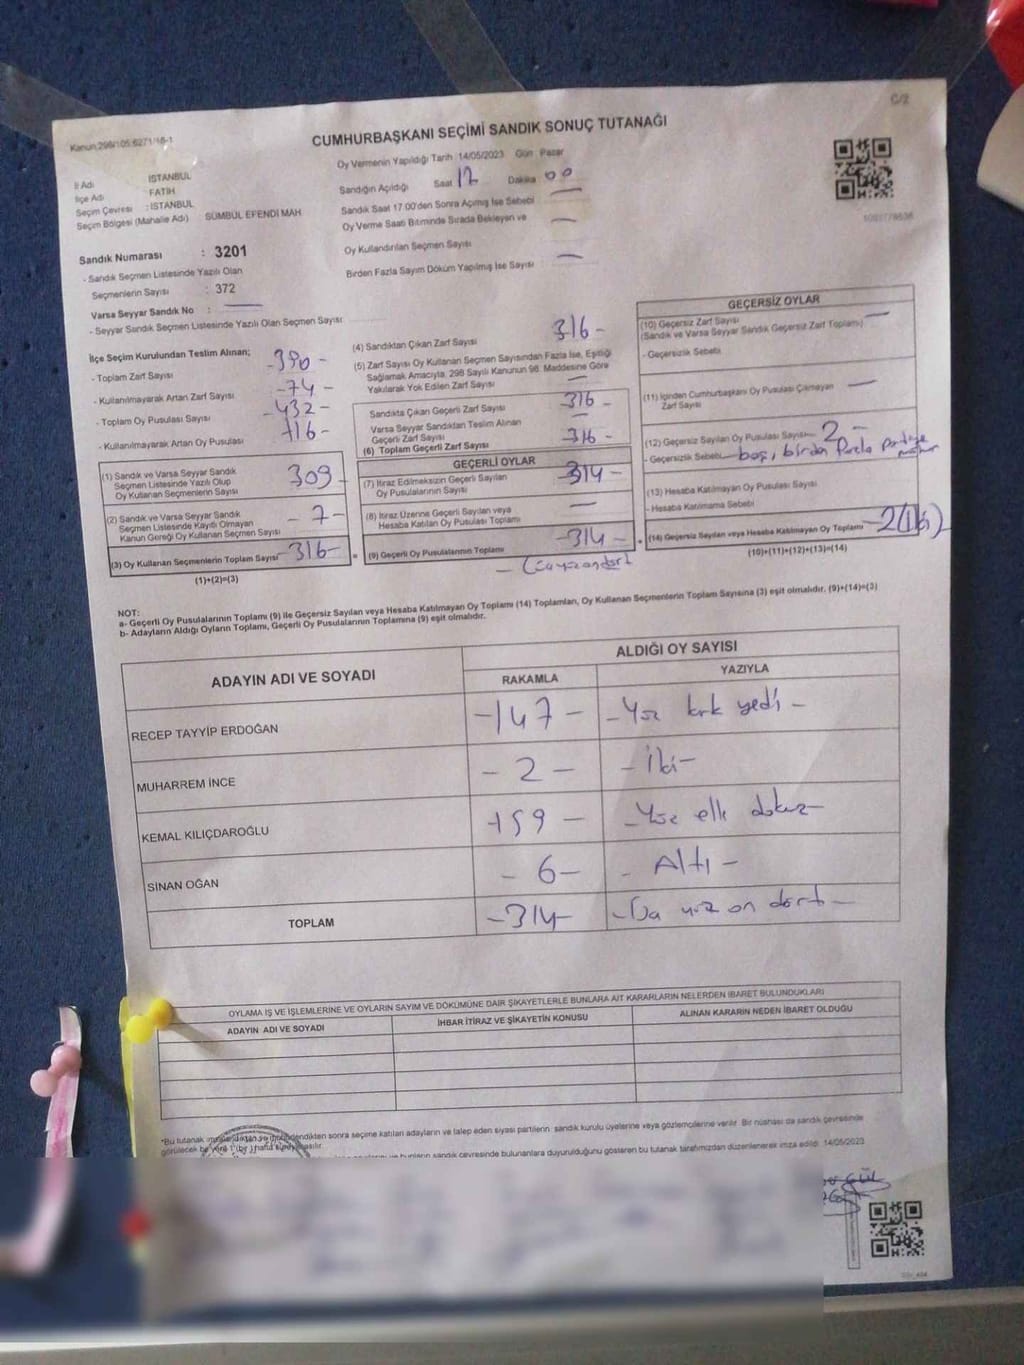 C/2
Kanun 298/105.6271/16-1
CUMHURBAŞKANI SEÇİMİ SANDIK SONUÇ TUTANAĞI
İl Adı : İSTANBUL
İlçe Adı FATİH
Seçim Çevresi : İSTANBUL
Seçim Bölgesi (Mahalle Adı) SÜMBÜL EFENDİ MAH
Sandık Numarası : 3201
- Sandık Seçmen Listesinde Yazılı Olan
Seçmenlerin Sayısı : 372
Varsa Seyyar Sandık No :
- Seyyar Sandık Seçmen Listesinde Yazılı Olan Seçmen Sayısı
Oy Vermenin Yapıldığı Tarih 14/05/2023 Gün : Pazar
Sandığın Açıldığı Saat 17 Dakika 00
Sandık Saat 17:00'den Sonra Açılmış İse Sebebi
Oy Verme Saati Bitiminde Sırada Bekleyen ve
Oy Kullandırılan Seçmen Sayısı
Birden Fazla Sayım Döküm Yapılmış İse Sayısı
İlçe Seçim Kurulundan Teslim Alınan;
- Toplam Zarf Sayısı -390-
- Kullanılmayarak Artan Zarf Sayısı -74-
- Toplam Oy Pusulası Sayısı -432-
- Kullanılmayarak Artan Oy Pusulası 116-
(1) Sandık ve Varsa Seyyar Sandık
Seçmen Listesinde Yazılı Olup
Oy Kullanan Seçmenlerin Sayısı 309-
(2) Sandık ve Varsa Seyyar Sandık
Seçmen Listesinde Kayıtlı Olmayan
Kanun Gereği Oy Kullanan Seçmen Sayısı -7-
(3) Oy Kullanan Seçmenlerin Toplam Sayısı -316-
(1)+(2)=(3)
(4) Sandıktan Çıkan Zarf Sayısı 316-
(5) Zarf Sayısı Oy Kullanan Seçmen Sayısından Fazla İse, Eşitliği
Sağlamak Amacıyla, 298 Sayılı Kanunun 98. Maddesine Göre
Yakılarak Yok Edilen Zarf Sayısı
Sandıkta Çıkan Geçerli Zarf Sayısı -316-
Varsa Seyyar Sandıktan Teslim Alınan
Geçerli Zarf Sayısı
(6) Toplam Geçerli Zarf Sayısı -316-
GEÇERLİ OYLAR
(7) İtiraz Edilmeksizin Geçerli Sayılan
Oy Pusulalarının Sayısı -314-
(8) İtiraz Üzerine Geçerli Sayılan veya
Hesaba Katılan Oy Pusulası Toplamı
(9) Geçerli Oy Pusulalarının Toplamı -314-
GEÇERSİZ OYLAR
(10) Geçersiz Zarf Sayısı
(Sandık ve Varsa Seyyar Sandık Geçersiz Zarf Toplamı)
- Geçersizlik Sebebi
(11) İçinden Cumhurbaşkanı Oy Pusulası Çıkmayan
Zarf Sayısı
(12) Geçersiz Sayılan Oy Pusulası Sayısı 2-
- Geçersizlik Sebebi boş, birden fazla
(13) Hesaba Katılmayan Oy Pusulası Sayısı
- Hesaba Katılmama Sebebi
(14) Geçersiz Sayılan veya Hesaba Katılmayan Oy Toplamı -2(iki)
(10)+(11)+(12)+(13)=(14)
NOT:
a- Geçerli Oy Pusulalarının Toplamı (9) ile Geçersiz Sayılan veya Hesaba Katılmayan Oy Toplamı (14) Toplamları, Oy Kullanan Seçmenlerin Toplam Sayısına (3) eşit olmalıdır. (9)+(14)=(3)
b- Adayların Aldığı Oyların Toplamı, Geçerli Oy Pusulalarının Toplamına (9) eşit olmalıdır.
ADAYIN ADI VE SOYADI
ALDIĞI OY SAYISI
RAKAMLA YAZIYLA
RECEP TAYYİP ERDOĞAN -147- -Yüz kırk yedi-
MUHARREM İNCE -2- -İki-
KEMAL KILIÇDAROĞLU 159- -Yüz elli dokuz-
SİNAN OĞAN -6- - Altı -
TOPLAM -314- -Üç yüz on dört-
OYLAMA İŞ VE İŞLEMLERİNE VE OYLARIN SAYIM VE DÖKÜMÜNE DAİR ŞİKAYETLERLE BUNLARA AİT KARARLARIN NELERDEN İBARET BULUNDUKLARI
ADAYIN ADI VE SOYADI
İHBAR İTİRAZ VE ŞİKAYETİN KONUSU
ALINAN KARARIN NEDEN İBARET OLDUĞU
*Bu tutanak sonra seçime katılan adayların ve talep eden siyasi partilerin sandık kurulu üyelerine veya gözlemcilerine verilir. Bir nüshası da sandık çevresinde
görülecek bir yere
sandık çevresinde bulunanlara duyurulduğunu gösteren bu tutanak tarafımızdan düzenlenerek imza edildi. 14/05/2023